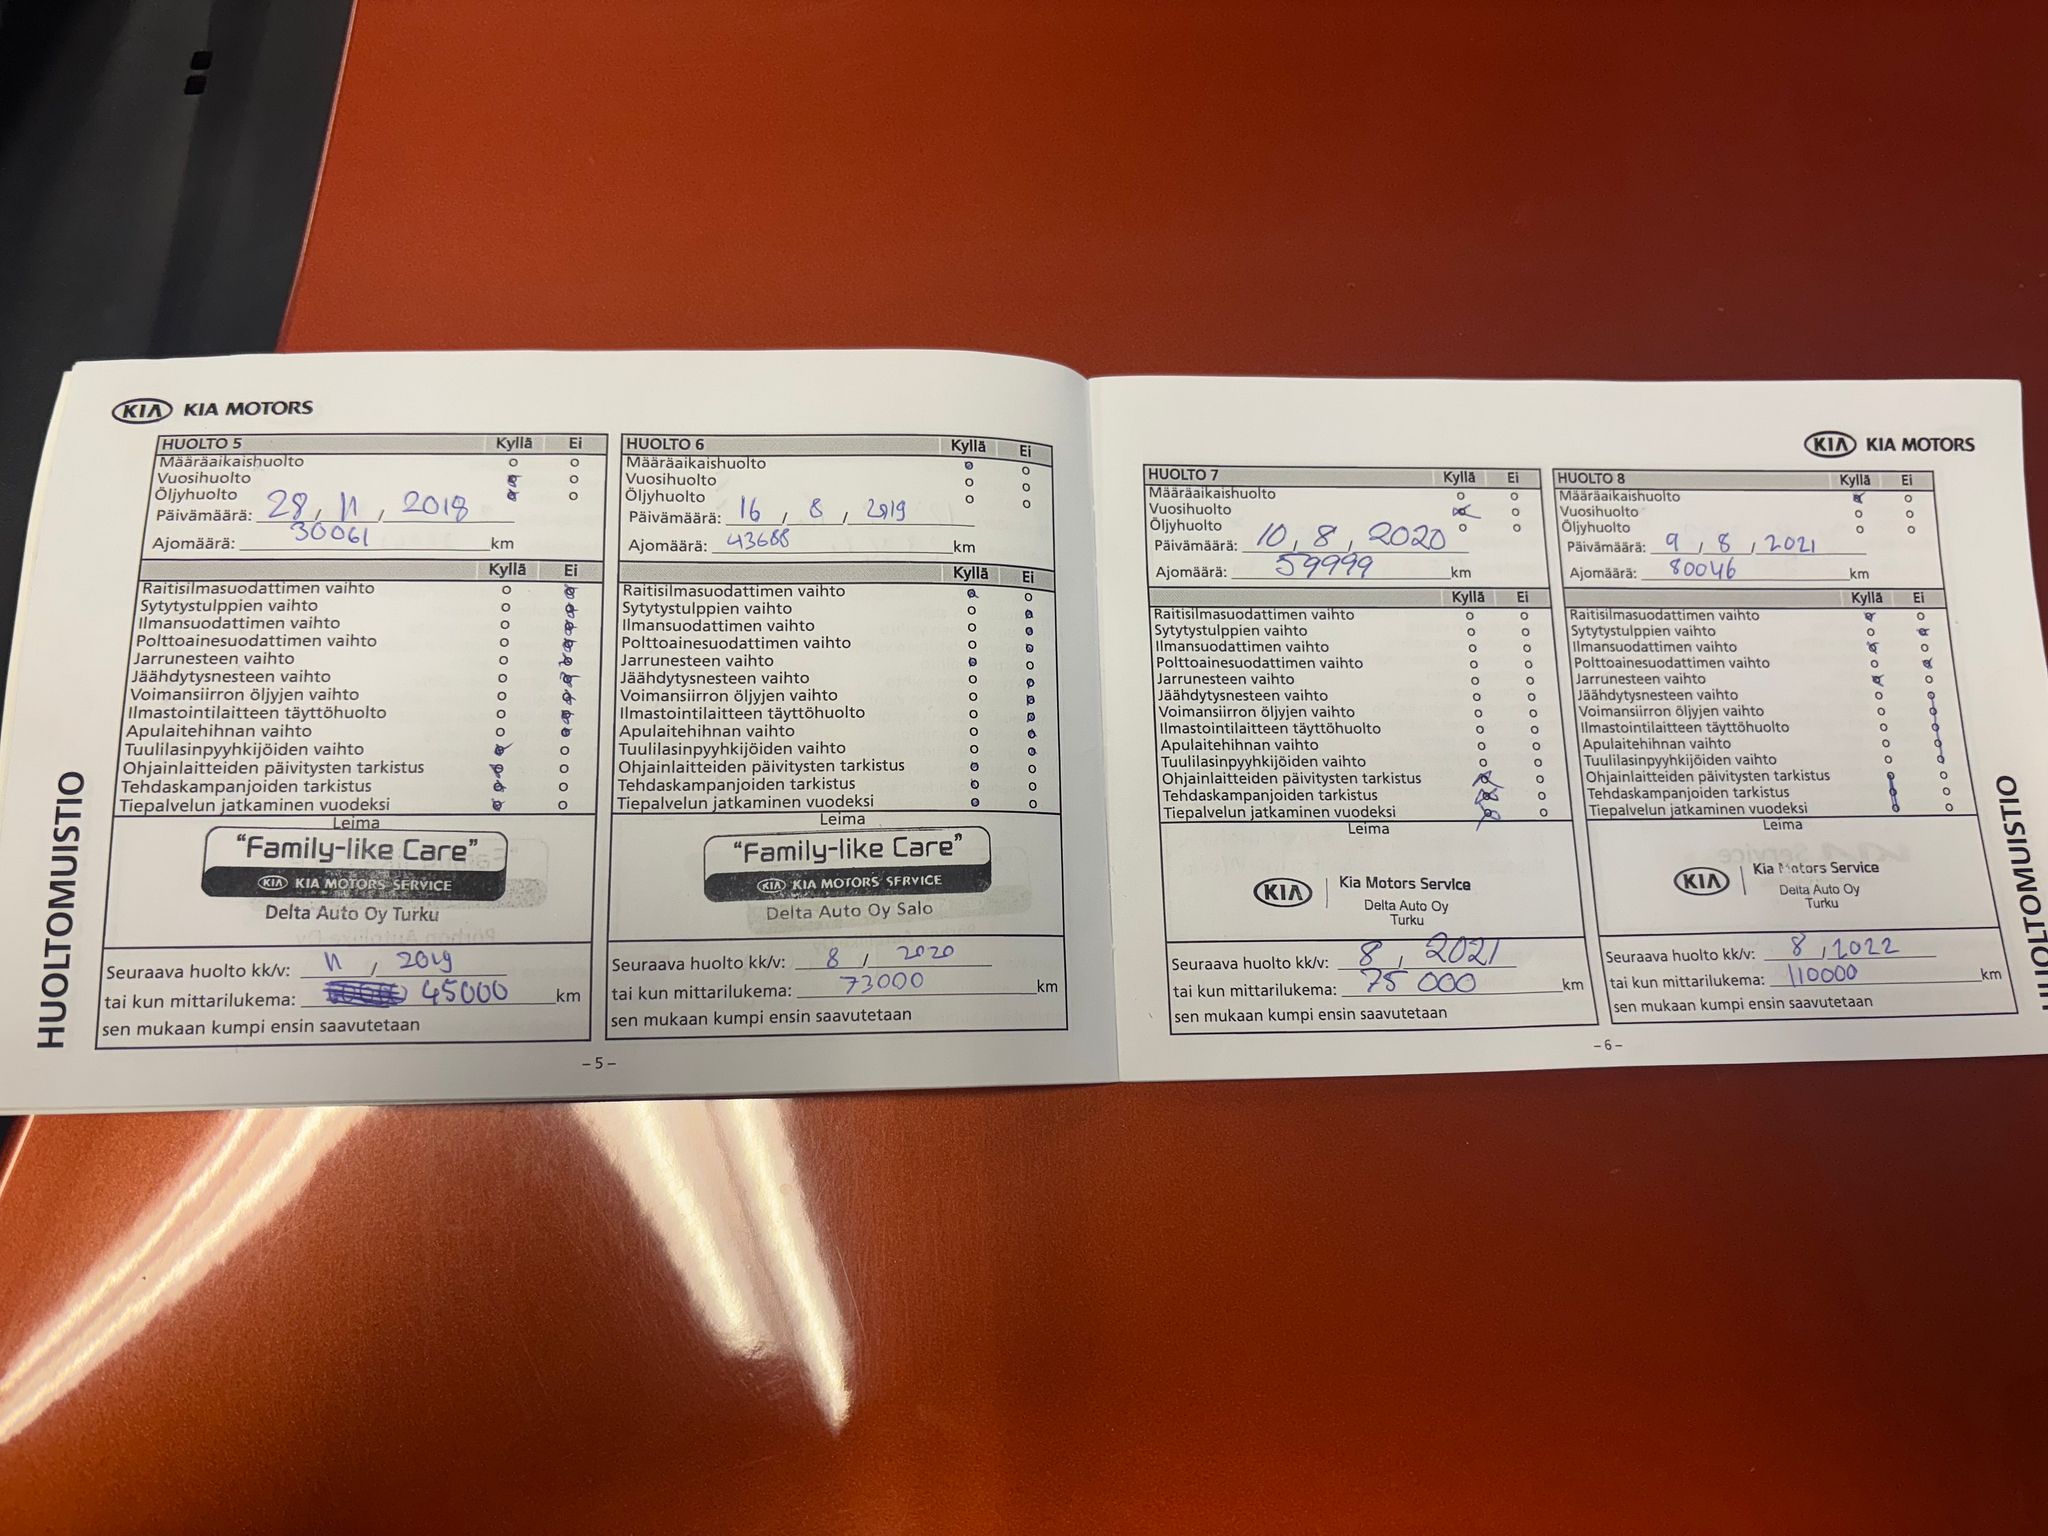 KIA KIA MOTORS
HUOLTOMUISTIO
HUOLTO 5 Kyllä Ei
Määräaikaishuolto
Vuosihuolto
Öljyhuolto
Päivämäärä: 28, 11, 2018
Ajomäärä: 30061 km
Kyllä Ei
Raitisilmasuodattimen vaihto
Sytytystulppien vaihto
Ilmansuodattimen vaihto
Polttoainesuodattimen vaihto
Jarrunesteen vaihto
Jäähdytysnesteen vaihto
Voimansiirron öljyjen vaihto
Ilmastointilaitteen täyttöhuolto
Apulaitehihnan vaihto
Tuulilasinpyyhkijöiden vaihto
Ohjainlaitteiden päivitysten tarkistus
Tehdaskampanjoiden tarkistus
Tiepalvelun jatkaminen vuodeksi
Leima
"Family-like Care"
KIA KIA MOTORS SERVICE
Delta Auto Oy Turku
Seuraava huolto kk/v: 11, 2019
tai kun mittarilukema: 45000 km
sen mukaan kumpi ensin saavutetaan
HUOLTO 6 Kyllä Ei
Määräaikaishuolto
Vuosihuolto
Öljyhuolto
Päivämäärä: 16, 8, 2019
Ajomäärä: 43688 km
Kyllä Ei
Raitisilmasuodattimen vaihto
Sytytystulppien vaihto
Ilmansuodattimen vaihto
Polttoainesuodattimen vaihto
Jarrunesteen vaihto
Jäähdytysnesteen vaihto
Voimansiirron öljyjen vaihto
Ilmastointilaitteen täyttöhuolto
Apulaitehihnan vaihto
Tuulilasinpyyhkijöiden vaihto
Ohjainlaitteiden päivitysten tarkistus
Tehdaskampanjoiden tarkistus
Tiepalvelun jatkaminen vuodeksi
Leima
"Family-like Care"
KIA KIA MOTORS SERVICE
Delta Auto Oy Salo
Seuraava huolto kk/v: 8 / 2020
tai kun mittarilukema: 73000 km
sen mukaan kumpi ensin saavutetaan
– 5 –
KIA KIA MOTORS
HUOLTO 7 Kyllä Ei
Määräaikaishuolto
Vuosihuolto
Öljyhuolto
Päivämäärä: 10, 8, 2020
Ajomäärä: 59999 km
Kyllä Ei
Raitisilmasuodattimen vaihto
Sytytystulppien vaihto
Ilmansuodattimen vaihto
Polttoainesuodattimen vaihto
Jarrunesteen vaihto
Jäähdytysnesteen vaihto
Voimansiirron öljyjen vaihto
Ilmastointilaitteen täyttöhuolto
Apulaitehihnan vaihto
Tuulilasinpyyhkijöiden vaihto
Ohjainlaitteiden päivitysten tarkistus
Tehdaskampanjoiden tarkistus
Tiepalvelun jatkaminen vuodeksi
Leima
KIA Kia Motors Service
Delta Auto Oy
Turku
Seuraava huolto kk/v: 8, 2021
tai kun mittarilukema: 75 000 km
sen mukaan kumpi ensin saavutetaan
HUOLTO 8 Kyllä Ei
Määräaikaishuolto
Vuosihuolto
Öljyhuolto
Päivämäärä: 9, 8, 2021
Ajomäärä: 80046 km
Kyllä Ei
Raitisilmasuodattimen vaihto
Sytytystulppien vaihto
Ilmansuodattimen vaihto
Polttoainesuodattimen vaihto
Jarrunesteen vaihto
Jäähdytysnesteen vaihto
Voimansiirron öljyjen vaihto
Ilmastointilaitteen täyttöhuolto
Apulaitehihnan vaihto
Tuulilasinpyyhkijöiden vaihto
Ohjainlaitteiden päivitysten tarkistus
Tehdaskampanjoiden tarkistus
Tiepalvelun jatkaminen vuodeksi
Leima
KIA Kia Motors Service
Delta Auto Oy
Turku
Seuraava huolto kk/v: 8, 2022
tai kun mittarilukema: 110000 km
sen mukaan kumpi ensin saavutetaan
– 6 –
HUOLTOMUISTIO